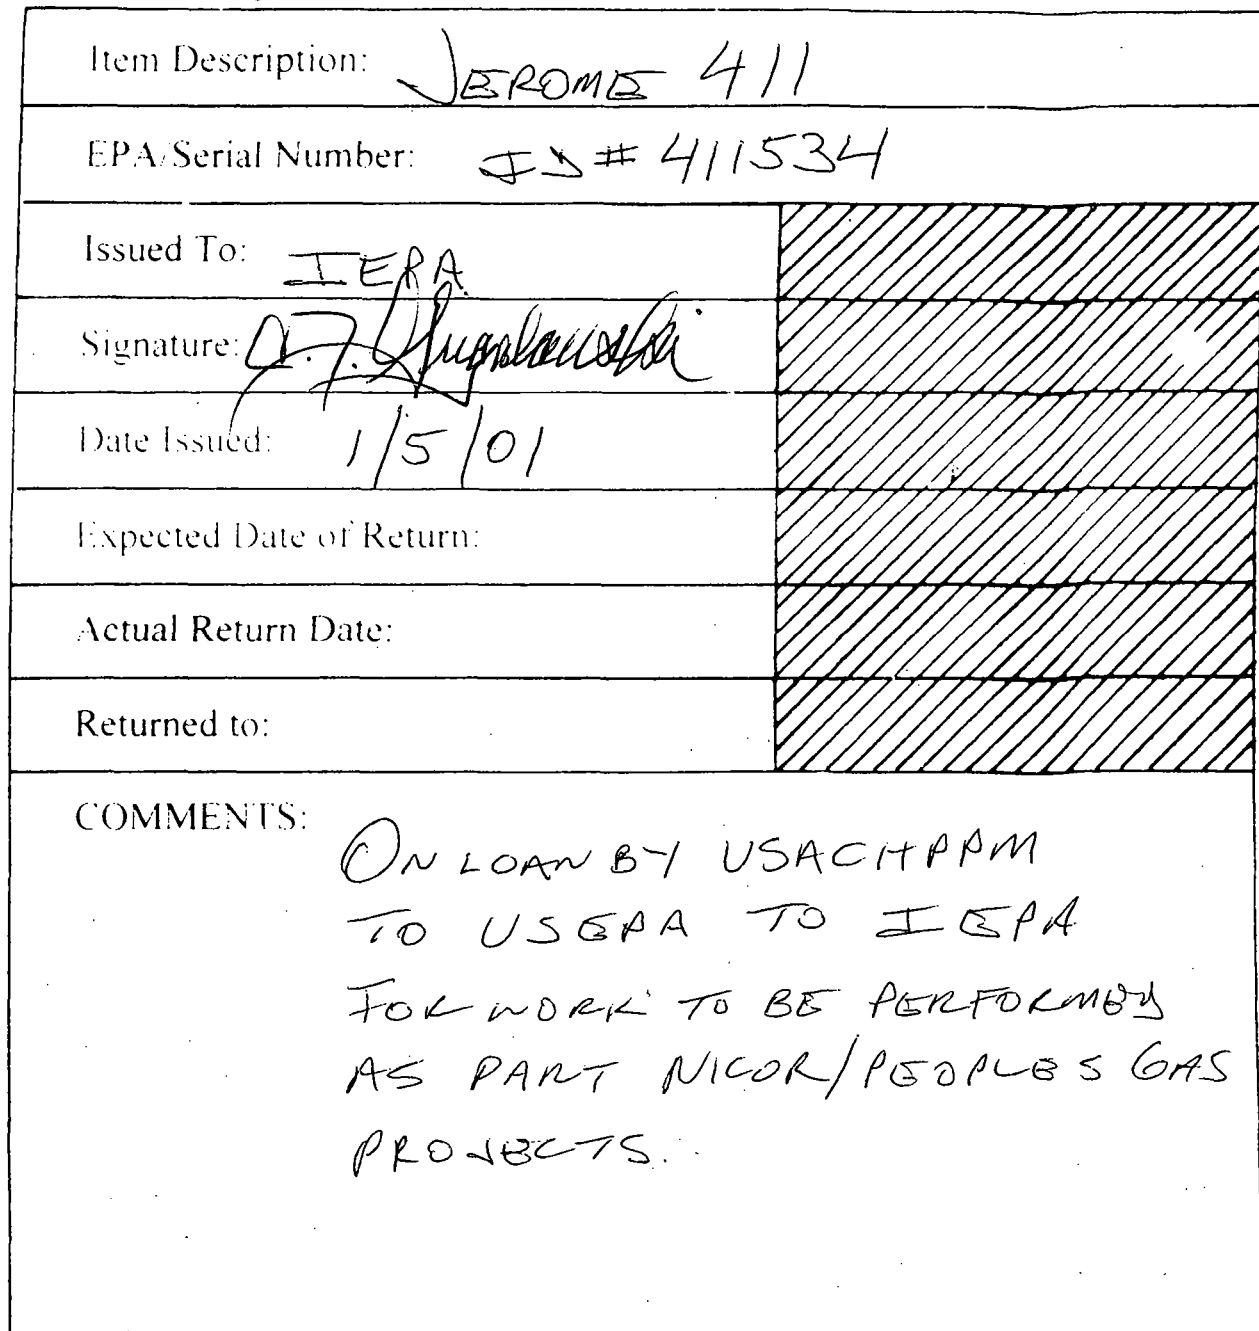 Item Description: JEROME 411
EPA/Serial Number: ID # 411534
Issued To: IEPA
Signature:
Date Issued: 1/5/01
Expected Date of Return:
Actual Return Date:
Returned to:
COMMENTS:
ON LOAN BY USACHPPM
TO USEPA TO IEPA
FOR WORK TO BE PERFORMED
AS PART NICOR/PEOPLES GAS
PROJECTS.